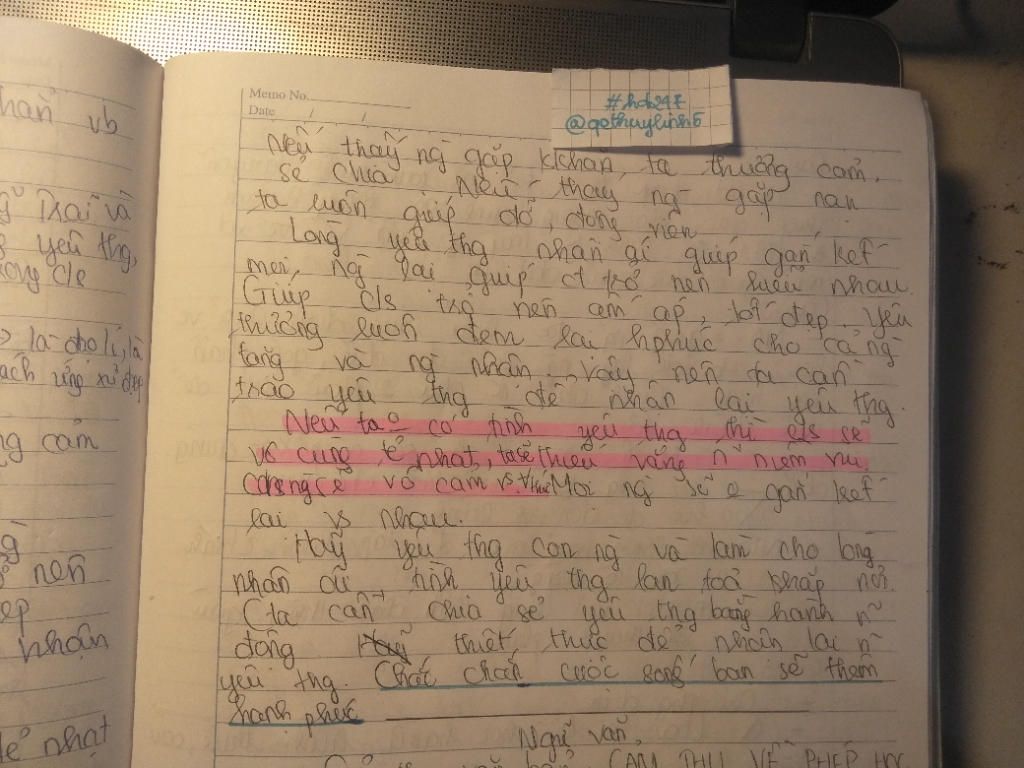 hần vb
Trãi và
yêu thg,
trong c/s
là đạo lí, là
ách ứng xử đẹp
ng cảm
nên
ẹp
nhận
để nhạt
Memo No.
Date / /
#hdb247
@qothuylinh5
Nếu thấy ng gặp khăn, ta thường cảm,
sẻ chia. Nếu thấy ng gặp nạn
ta luôn giúp đỡ, động viên
Lòng yêu thg nhân ái giúp gắn kết
mọi ng lại, giúp ct trở nên hiểu nhau.
Giúp c/s trở nên ấm áp, tốt đẹp. Yêu
thương luôn đem lại hphúc cho cả ng
tặng và ng nhận. Vậy nên ta cần
trao yêu thg để nhận lại yêu thg.
Nếu ta 0 có tình yêu thg thì c/s sẽ
vô cùng tẻ nhạt, ta sẽ thiếu vắng n~ niềm vui
con ng sẽ vô cảm vs Mọi ng sẽ 0 gắn kết
lại vs nhau.
Hãy yêu thg con ng và làm cho lòng
nhân ái, tình yêu thg lan toả khắp nơi.
Cta cần chia sẻ yêu thg bằng hành n~
động thiết thực để nhận lại n~
yêu thg. Chắc chắn cuộc sống bạn sẽ thêm
hạnh phúc
Ngữ văn.
CẢM THỤ VỀ PHÉP HỌC